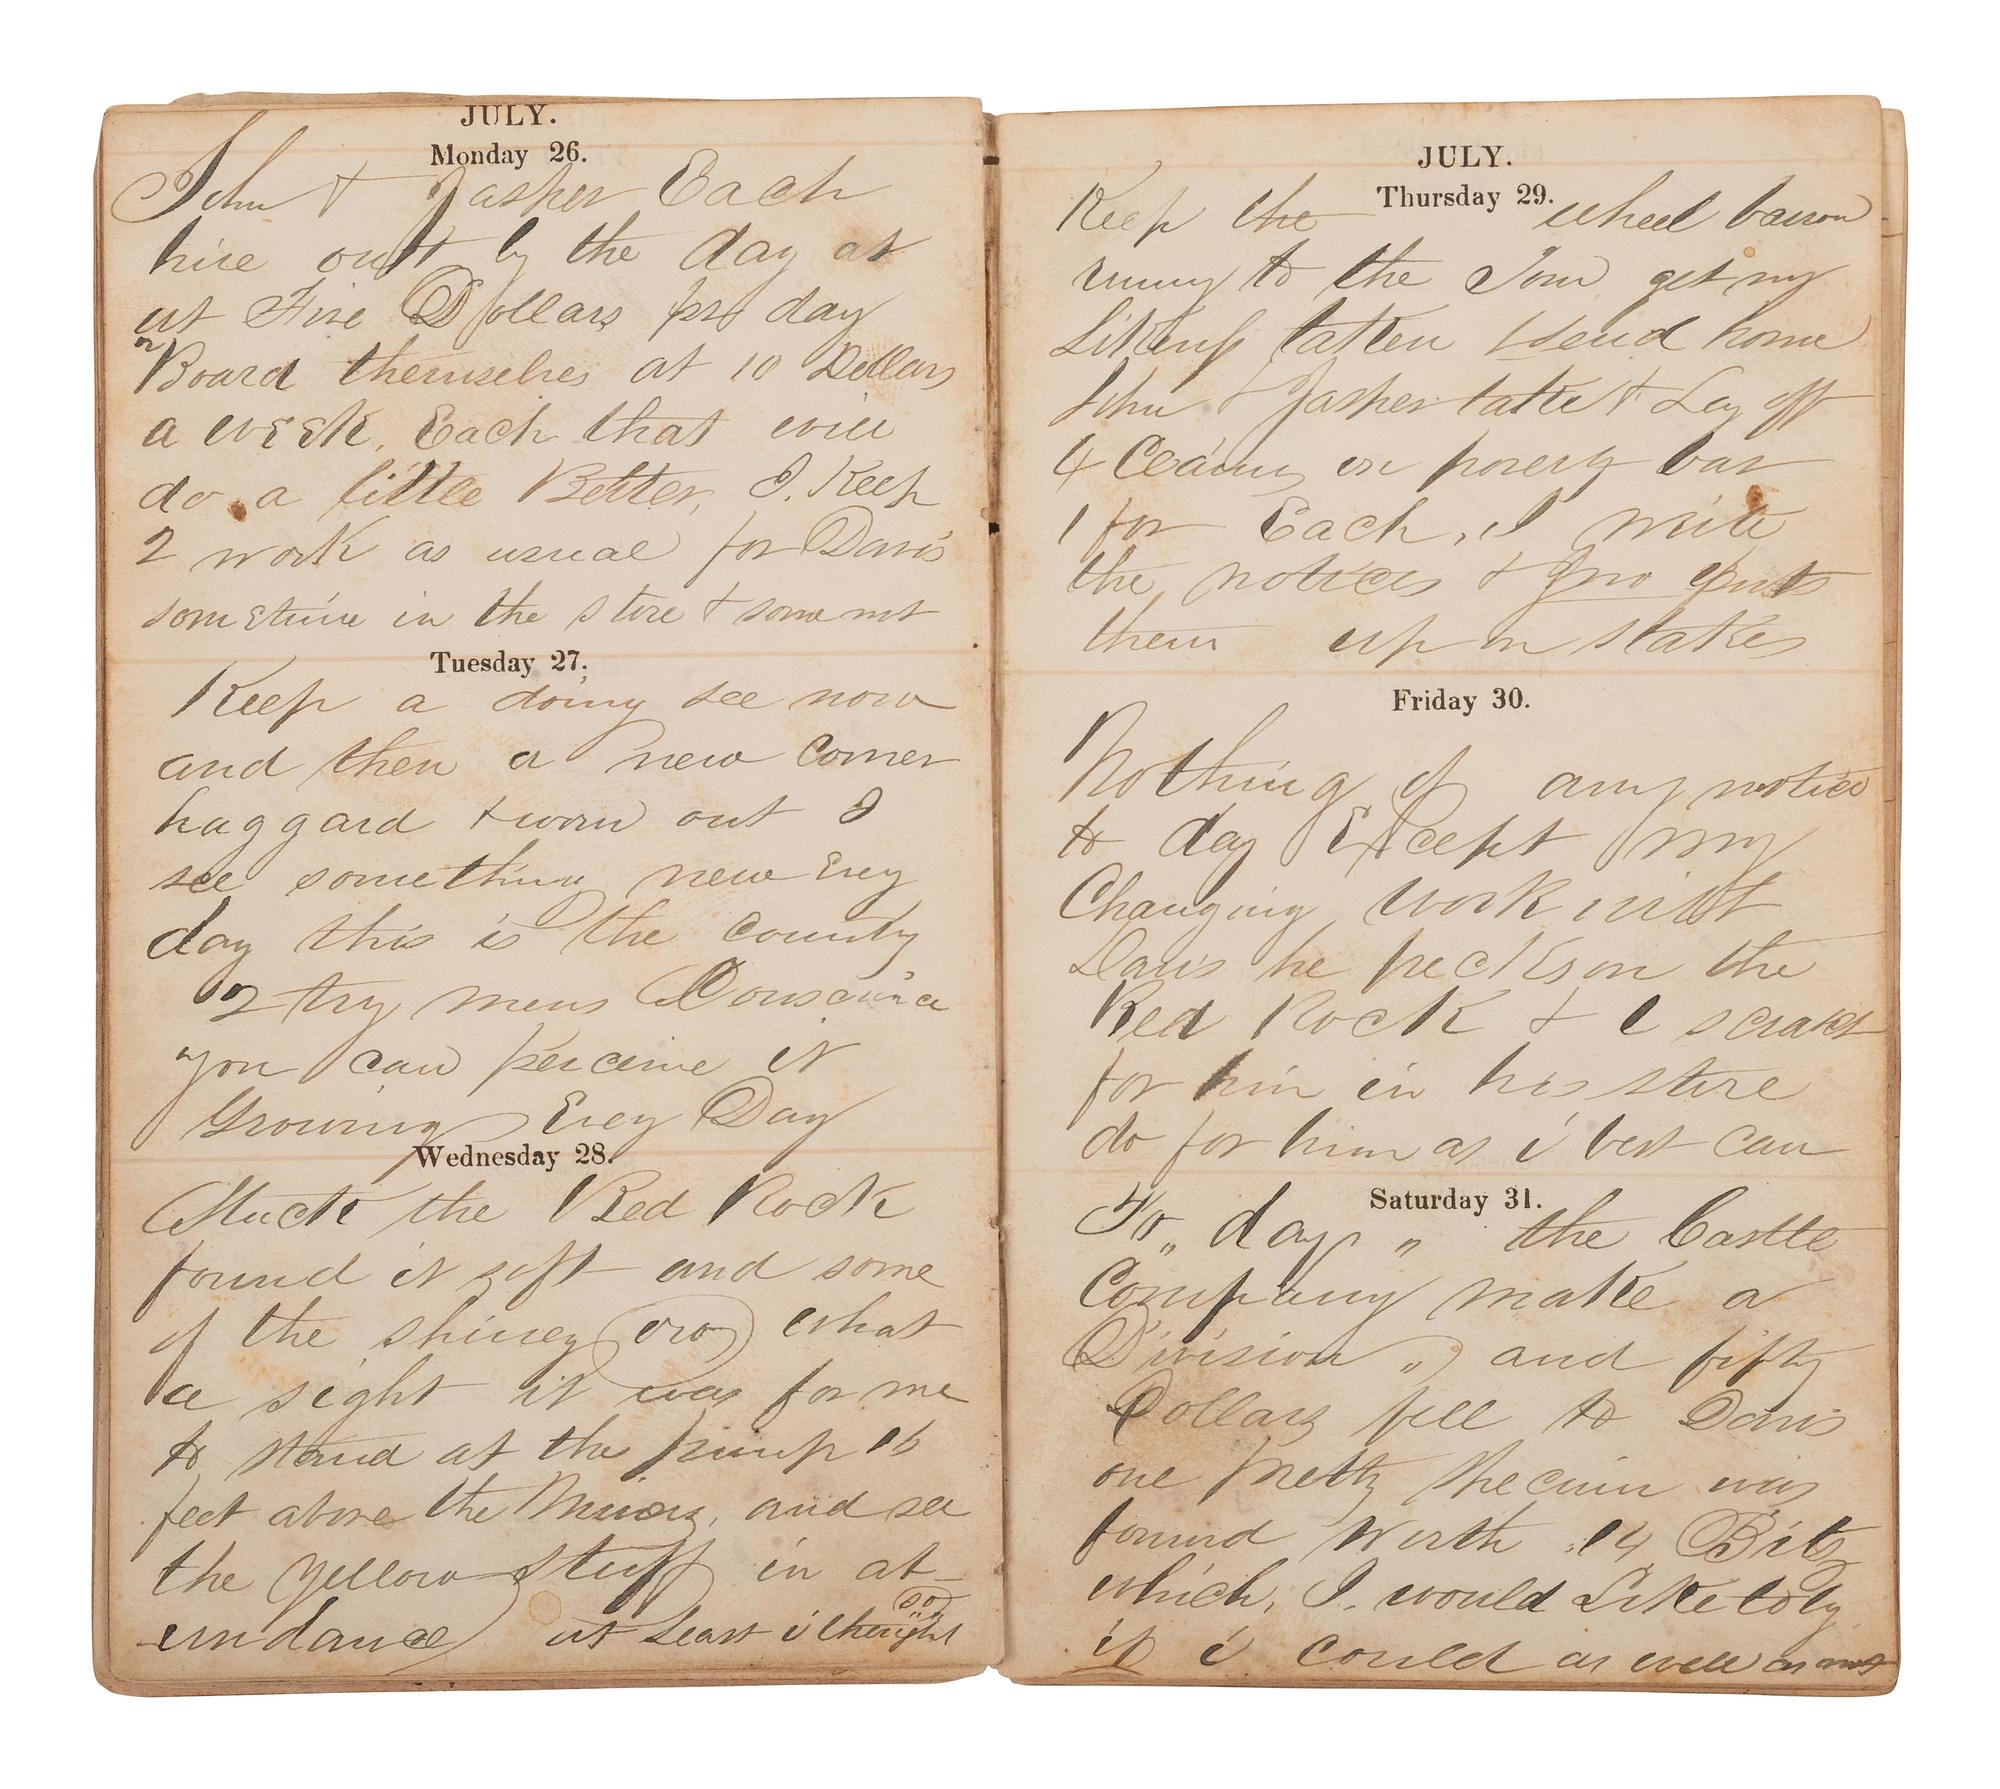 JULY.
Monday 26.
John & Jasher Each
hire outt by the day at
at Five Dollars pr day
Board themselves at 10 Dollars
a week. Each that will
do a little Better, I. Keep
2 work as usual for Davis
sometime in the store & some not
Tuesday 27.
Keep a doing see now
and then a new Comer
haggard & worn out I
see something new Evey
day this is the county
2 try mens Conscience
you can perceive it
Growing Evey Day
Wednesday 28.
Stuck the Red Rock
found it soft and some
of the shiney oro what
a sight it was for me
to stand at the pump 16
feet above the Miners, and see
the yellow stuff in at-
undance at Least i thought
so
JULY.
Thursday 29.
Keep the wheel barrow
runing to the Tom get my
Likings taken & send home
John & Jasher take & Lay off
4 Claims on poverty bar
1 for Each, I write
the notices & Jno puts
them up on stakes
Friday 30.
Nothing of any notice
to day Except my
Changing work witt
Davis he pecks on the
Red Rock & I scratch
for him in his store
do for him as i best can
Saturday 31.
To „ day „ the Castle
Company make a
Division „ and fifty
Dollars fell to Davis
one pretty specimin was
found worth 14 Bits
which, I. would Like to by
if i could as well as not